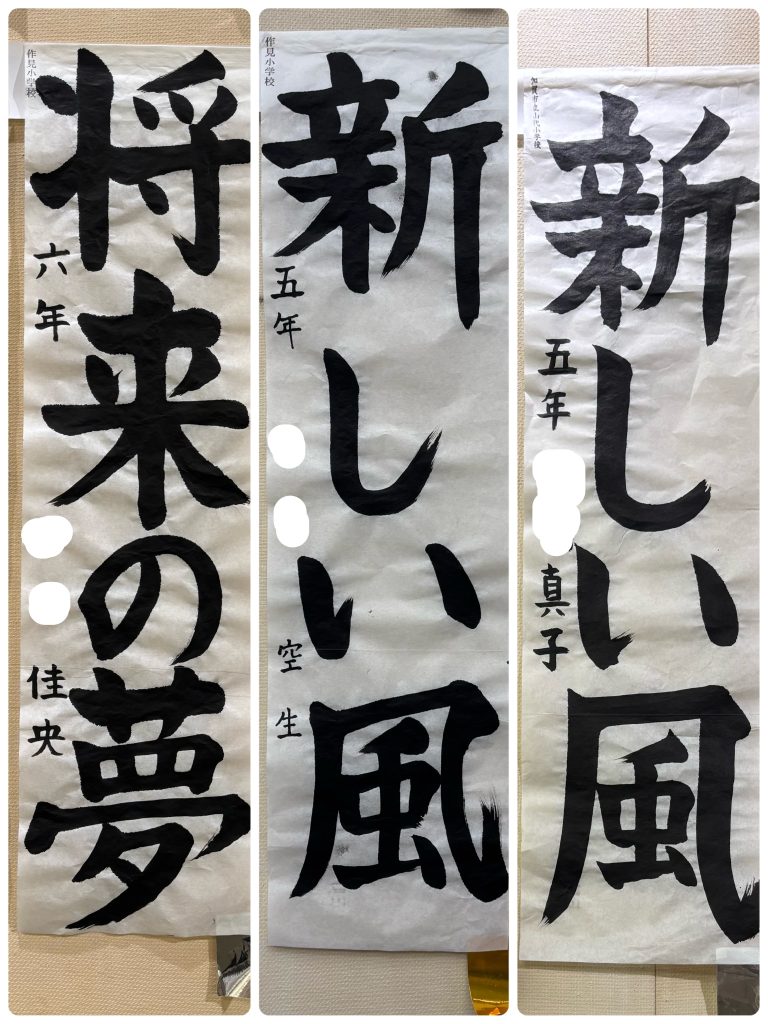 作見小学校
将来の夢
六年
佳央
作見小学校
新しい風
五年
空生
加賀市立山代小学校
新しい風
五年
真子